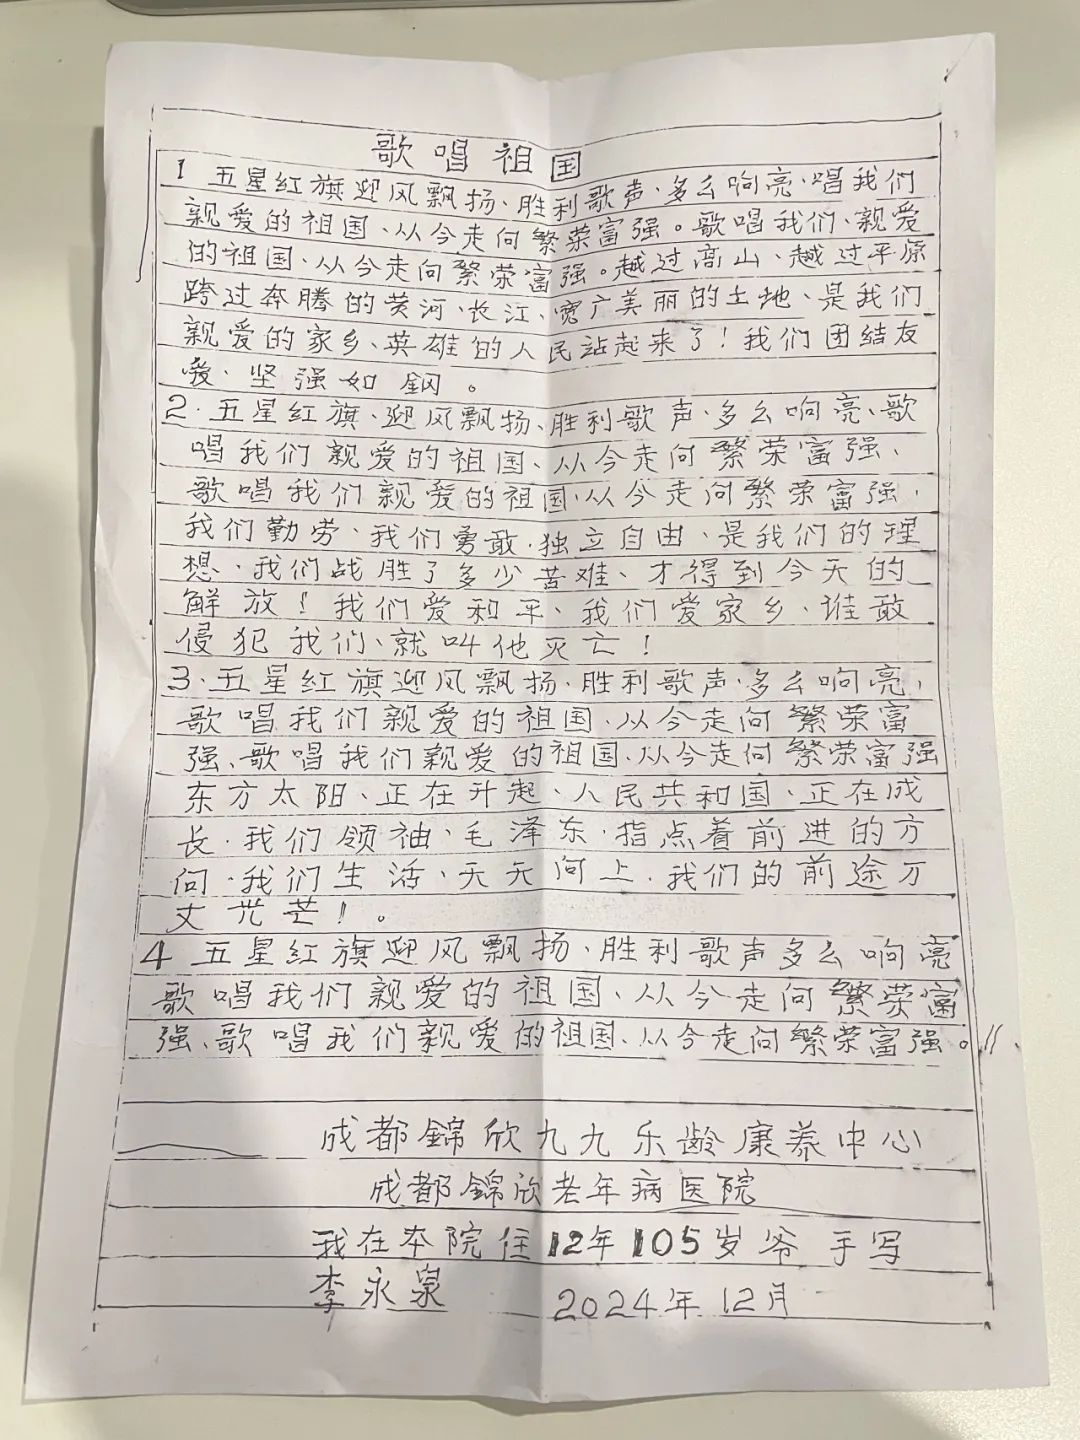 歌唱祖国
1 五星红旗迎风飘扬、胜利歌声、多么响亮、唱我们
亲爱的祖国、从今走向繁荣富强。歌唱我们、亲爱
的祖国、从今走向繁荣富强。越过高山、越过平原
跨过奔腾的黄河、长江、宽广美丽的土地、是我们
亲爱的家乡、英雄的人民站起来了！我们团结友
爱、坚强如鋼。
2.五星红旗、迎风飘扬、胜利歌声、多么响亮、歌
唱我们亲爱的祖国、从今走向繁荣富强、
歌唱我们亲爱的祖国、从今走向繁荣富强、
我们勤劳、我们勇敢、独立自由、是我们的理
想、我们战胜了多少苦难、才得到今天的
解放！我们爱和平、我们爱家乡、谁敢
侵犯我们、就叫他灭亡！
3.五星红旗迎风飘扬、胜利歌声、多么响亮、
歌唱我们亲爱的祖国、从今走向繁荣富
强、歌唱我们亲爱的祖国、从今走向繁荣富强
东方太阳、正在升起、人民共和国、正在成
长、我们领袖、毛泽东、指点着前进的方
向、我们生活、天天向上、我们的前途万
丈光芒！。
4 五星红旗迎风飘扬、胜利歌声多么响亮
歌唱我们亲爱的祖国、从今走向繁荣富
强、歌唱我们亲爱的祖国、从今走向繁荣富强。
成都錦欣九九乐龄康养中心
成都錦欣老年病医院
我在本院住12年105岁爷手写
李永泉 2024年12月